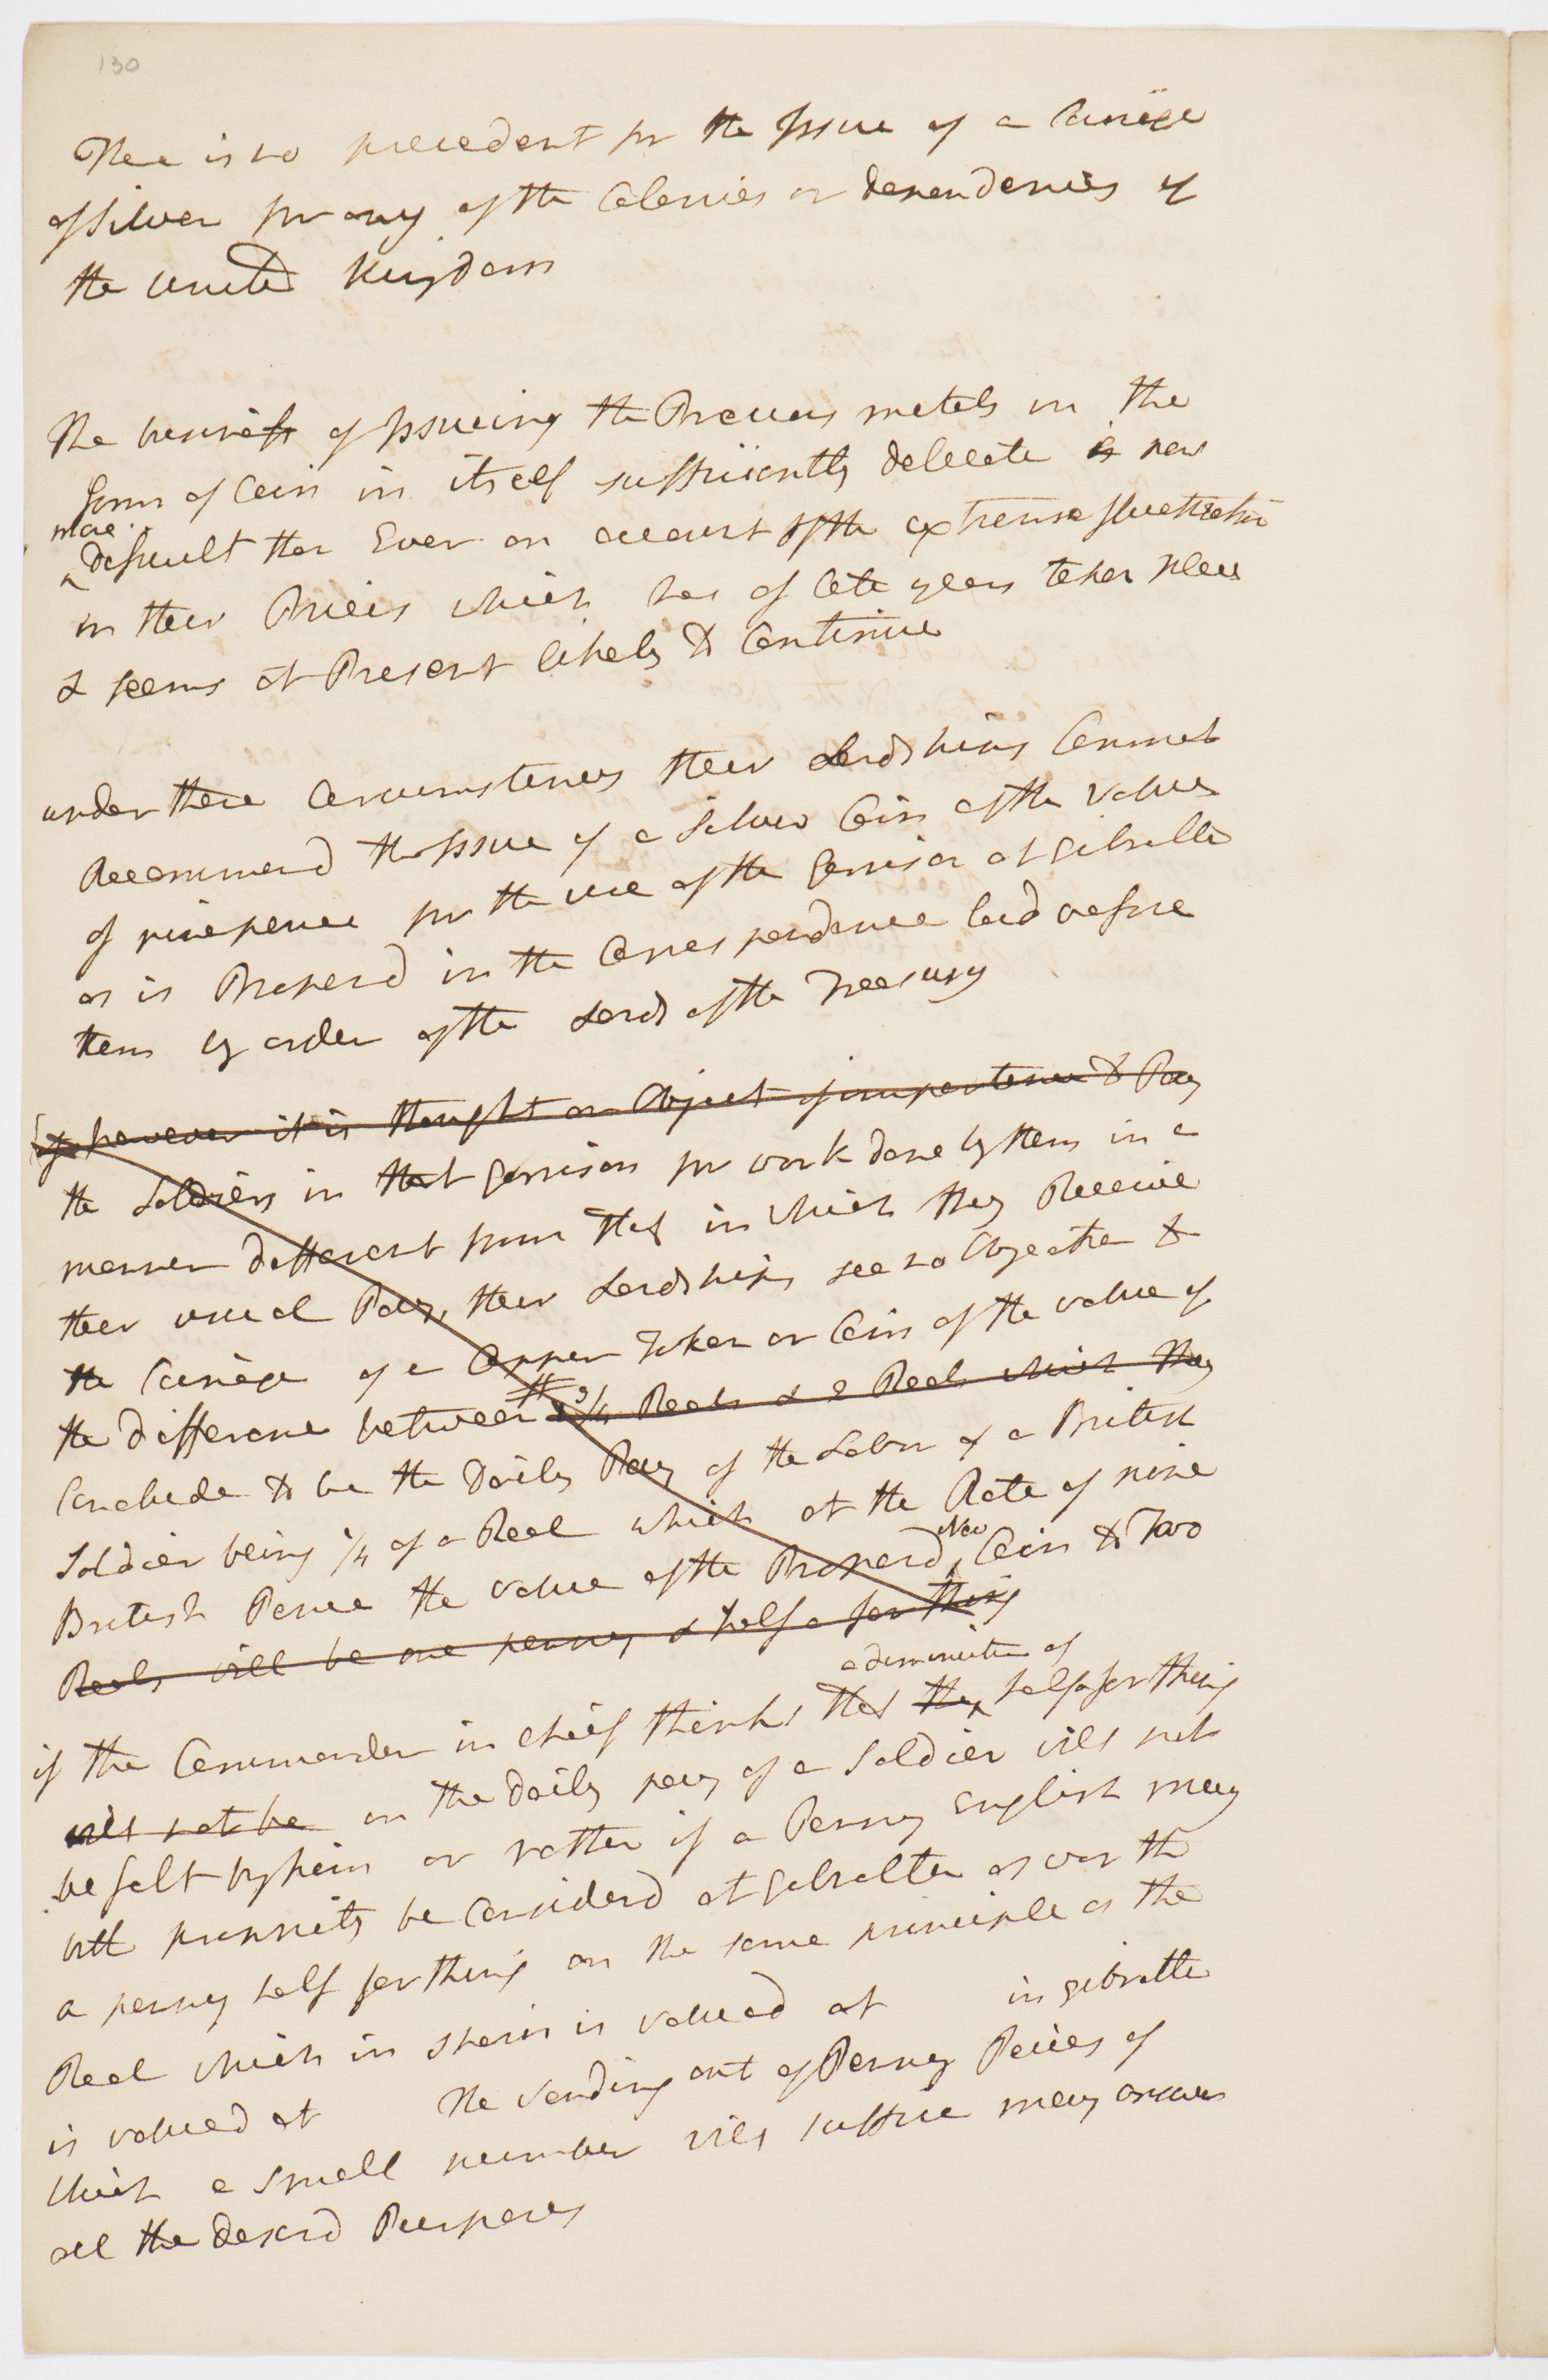 130
There is no precedent for the Issue of a Coinage
of silver for any of the Colonies or dependencies of
the United Kingdom
The business of Issuing the Precious metals in the
form of Coin in itself sufficiently delicate is now
more
difficult than Ever on account of the extreme fluctuation
in their Prices which has of late years taken place
& seems at Present likely to Continue
under these Circumstances their Lordships Cannot
Recommend the Issue of a Silver Coin of the value
of ninepence for the use of the Garrison at Gibralter
as is Proposd in the Correspondence laid before
them by order of the Lords of the Treasury
if however it is thought an Object of importance to Pay
the Soldiers in that Garrison for work done by them in a
manner different from that in which they Receive
their usual Pay, their Lordships see no Objection to
the Coinage of a Copper Token or Coin of the value of
the difference between 2 3/4 Reals & 2 Reals which they
Conclude to be the Daily Pay of the Labor of a British
Soldier being 1/4 of a Real which at the Rate of nine
New
British Pence the value of the Proposd Coin to Two
Reals will be one penny & half a farthing
a diminution of
if the Commander in chief thinks that the half a farthing
will not be in the Daily pay of a Soldier will not
be felt by him or rather if a Penny English may
with propriety be Considerd at Gibralter as worth
a penny half farthing on the same principle as the
Real which in Spain is valued at in gibralter
is valued at The sending out of Penny Peices of
which a small number will suffice may answer
all the Desird Purposes